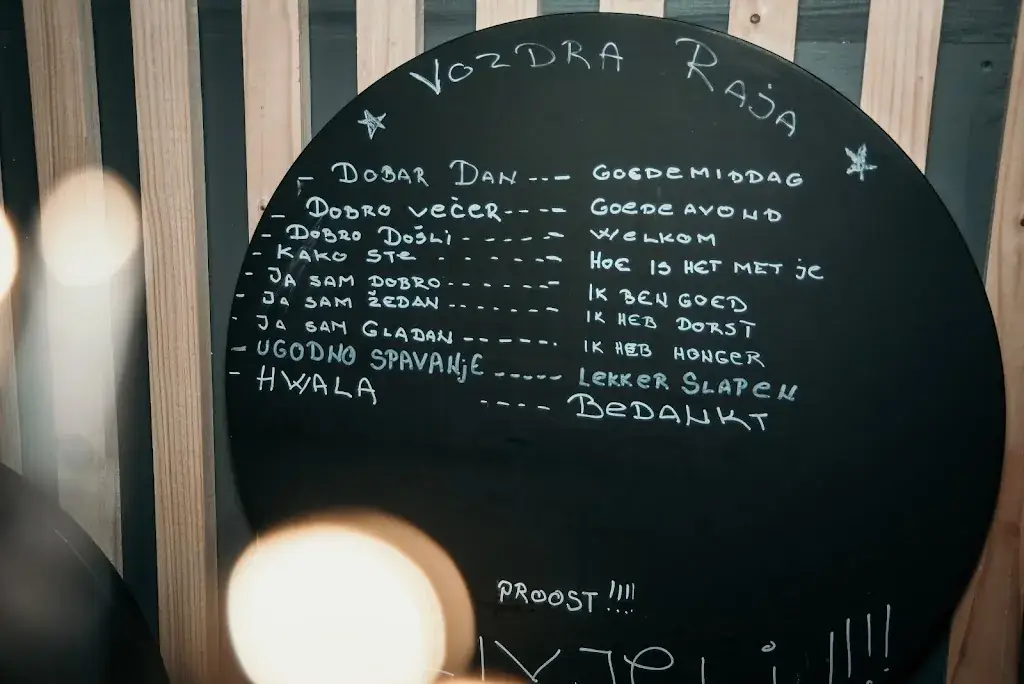 VOZDRA RAJA
- DOBAR DAN --- GOEDEMIDDAG
- DOBRO VEČER---- GOEDE AVOND
- DOBRO DOŠLI ------- WELKOM
- KAKO STE ------- HOE IS HET MET JE
- JA SAM DOBRO------- IK BEN GOED
- JA SAM ŽEDAN ------- IK HEB DORST
- JA SAM GLADAN ------. IK HEB HONGER
- UGODNO SPAVANJE ----- LEKKER SLAPEN
- HWALA ---- BEDANKT
PROOST !!!!